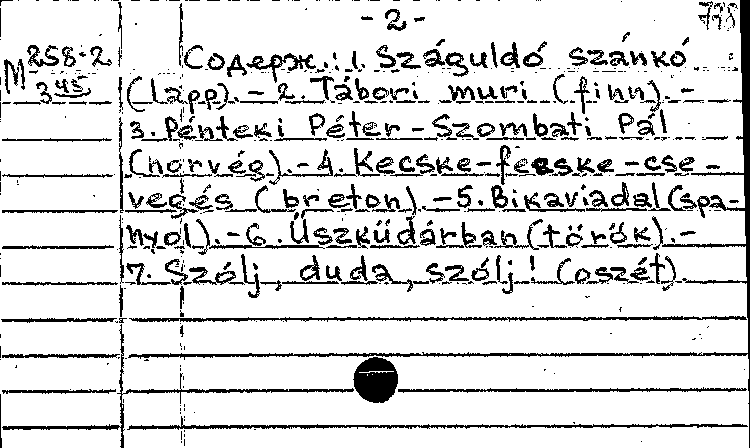 - 2 -
778
М 258-2
345
Содерж.: 1. Száguldó szánkó
(lapp). - 2. Tábori muri (finn). -
3. Pénteki Péter - Szombati Pál
(norvég). - 4. Kecske-fecske-cse-
vegés (breton). - 5. Bikaviadal (spa-
nyol). - 6. Üszküdárban (török). -
7. Szólj, duda, szólj! (oszét).